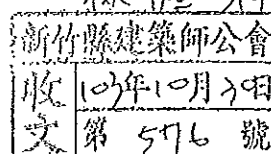 新竹縣建築師公會
收 103年10月30日
文 第 576 號